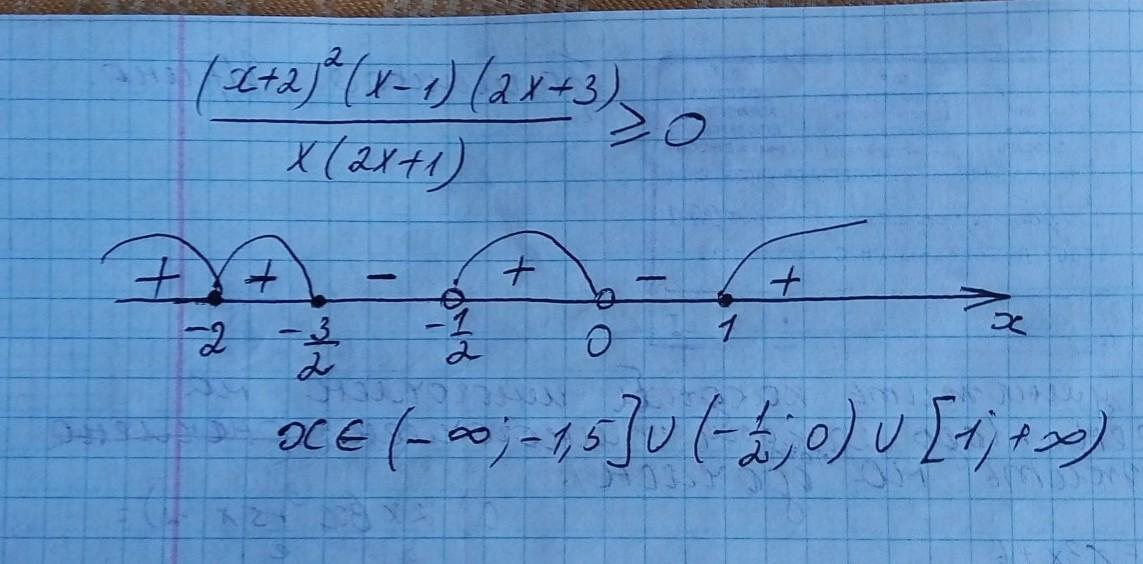 (x+2)²(x-1)(2x+3)
x(2x+1)
≥ 0
+ + - + - +
-2 -3/2 -1/2 0 1 x
x ∈ (-∞; -1,5] ∪ (-1/2; 0) ∪ [1; +∞)